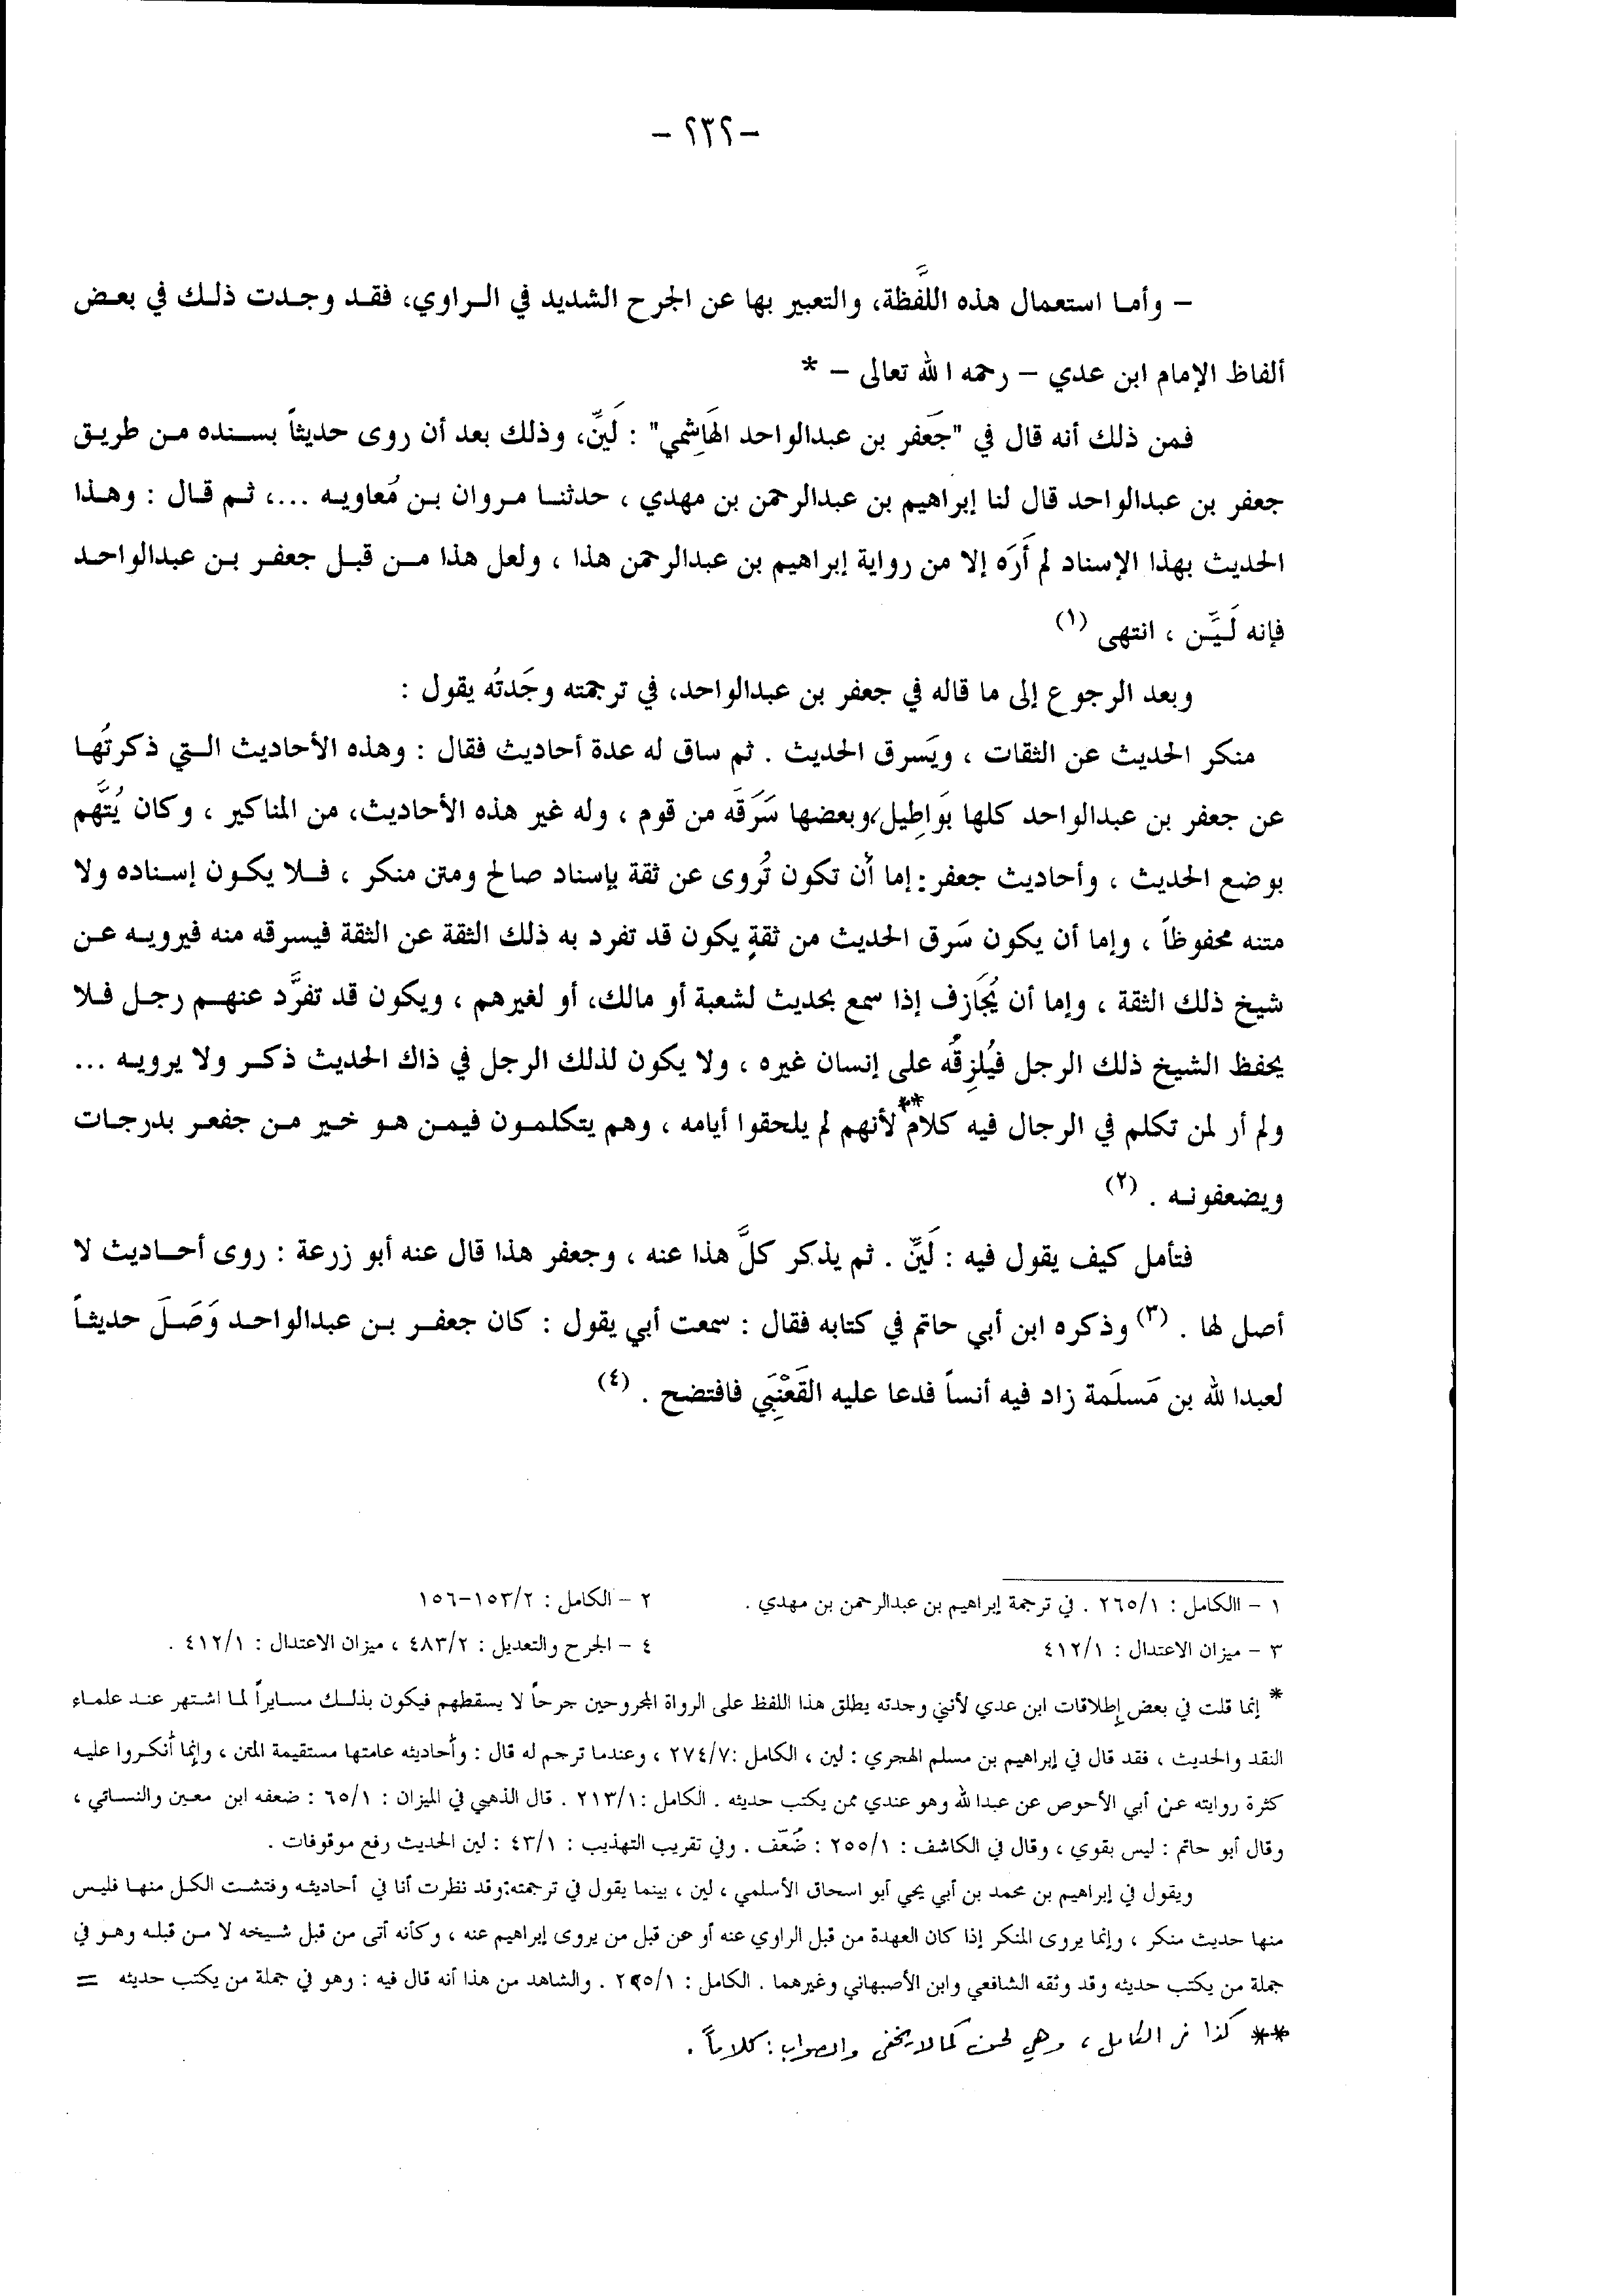 -٢٣٢-
- وأما استعمال هذه اللَّفظة، والتعبير بها عن الجرح الشديد في الراوي، فقد وجدت ذلك في بعض
ألفاظ الإمام ابن عدي - رحمه الله تعالى - *
فمن ذلك أنه قال في "جَعفر بن عبدالواحد الهَاشِمي" : لَيِّن، وذلك بعد أن روى حديثاً بسنده من طريق
جعفر بن عبدالواحد قال لنا إبراهيم بن عبدالرحمن بن مهدي ، حدثنا مروان بن مُعاويه ...، ثم قال : وهذا
الحديث بهذا الإسناد لم أَرَه إلا من رواية إبراهيم بن عبدالرحمن هذا ، ولعل هذا من قبل جعفر بن عبدالواحد
فإنه لَيَّن ، انتهى (١)
وبعد الرجوع إلى ما قاله في جعفر بن عبدالواحد، في ترجمته وجَدتُه يقول :
منكر الحديث عن الثقات ، ويَسرق الحديث . ثم ساق له عدة أحاديث فقال : وهذه الأحاديث التي ذكرتُها
عن جعفر بن عبدالواحد كلها بَواطِيل،وبعضها سَرَقَه من قوم ، وله غير هذه الأحاديث، من المناكير ، وكان يُتَّهم
بوضع الحديث ، وأحاديث جعفر: إما أن تكون تُروى عن ثقة بإسناد صالح ومتن منكر ، فلا يكون إسناده ولا
متنه محفوظاً ، وإما أن يكون سَرق الحديث من ثقةٍ يكون قد تفرد به ذلك الثقة عن الثقة فيسرقه منه فيرويه عن
شيخ ذلك الثقة ، وإما أن يُجَازف إذا سمع بحديث لشعبة أو مالك، أو لغيرهم ، ويكون قد تفرَّد عنهم رجل فلا
يحفظ الشيخ ذلك الرجل فيُلزِقُه على إنسان غيره ، ولا يكون لذلك الرجل في ذاك الحديث ذكر ولا يرويه ...
ولم أر لمن تكلم في الرجال فيه كلام** لأنهم لم يلحقوا أيامه ، وهم يتكلمون فيمن هو خير من جفعر بدرجات
ويضعفونه . (٢)
فتأمل كيف يقول فيه : لَيِّن . ثم يذكر كلَّ هذا عنه ، وجعفر هذا قال عنه أبو زرعة : روى أحاديث لا
أصل لها . (٣) وذكره ابن أبي حاتم في كتابه فقال : سمعت أبي يقول : كان جعفر بن عبدالواحد وَصَلَ حديثاً
لعبدالله بن مَسلَمة زاد فيه أنساً فدعا عليه القَعْنَبِي فافتضح . (٤)
١ - االكامل : ٢٦٥/١ . في ترجمة إبراهيم بن عبدالرحمن بن مهدي . ٢ - الكامل : ١٥٣/٢-١٥٦
٣ - ميزان الاعتدال : ٤١٢/١ ٤ - الجرح والتعديل : ٤٨٣/٢ ، ميزان الاعتدال : ٤١٢/١ .
* إنما قلت في بعض إطلاقات ابن عدي لأنني وجدته يطلق هذا اللفظ على الرواة المجروحين جرحاً لا يسقطهم فيكون بذلك مسايراً لما اشتهر عند علماء
النقد والحديث ، فقد قال في إبراهيم بن مسلم الهجري : لين ، الكامل :٢٧٤/٧ ، وعندما ترجم له قال : وأحاديثه عامتها مستقيمة المتن ، وإنما أنكروا عليه
كثرة روايته عن أبي الأحوص عن عبدالله وهو عندي ممن يكتب حديثه . الكامل :٢١٣/١ . قال الذهبي في الميزان : ٦٥/١ : ضعفه ابن معين والنسائي ،
وقال أبو حاتم : ليس بقوي ، وقال في الكاشف : ٢٥٥/١ : ضُعّف . وفي تقريب التهذيب : ٤٣/١ : لين الحديث رفع موقوفات .
ويقول في إبراهيم بن محمد بن أبي يحي أبو اسحاق الأسلمي ، لين ، بينما يقول في ترجمته:وقد نظرت أنا في أحاديثه وفتشت الكل منها فليس
منها حديث منكر ، وإنما يروى المنكر إذا كان العهدة من قبل الراوي عنه أو عن قبل من يروى إبراهيم عنه ، وكأنه أتى من قبل شيخه لا من قبله وهو في
جملة من يكتب حديثه وقد وثقه الشافعي وابن الأصبهاني وغيرهما . الكامل : ٢٢٥/١ . والشاهد من هذا أنه قال فيه : وهو في جملة من يكتب حديثه =
** كذا في الكامل ، وهي لحن كما لا يخفى والصواب : كلاماً .